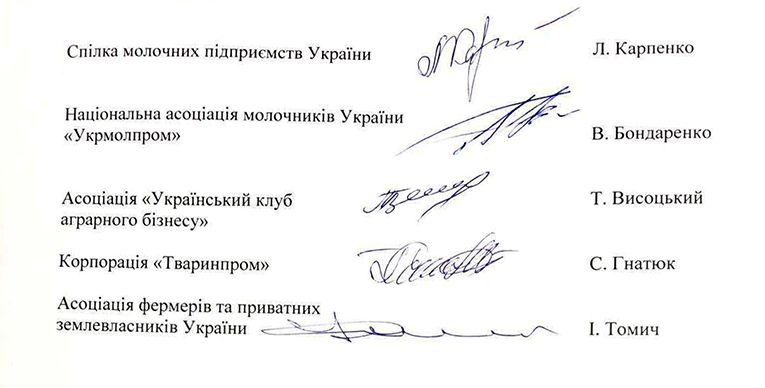 Спілка молочних підприємств України Л. Карпенко
Національна асоціація молочників України
«Укрмолпром» В. Бондаренко
Асоціація «Український клуб Т. Висоцький
аграрного бізнесу»
Корпорація «Тваринпром» С. Гнатюк
Асоціація фермерів та приватних
землевласників України І. Томич